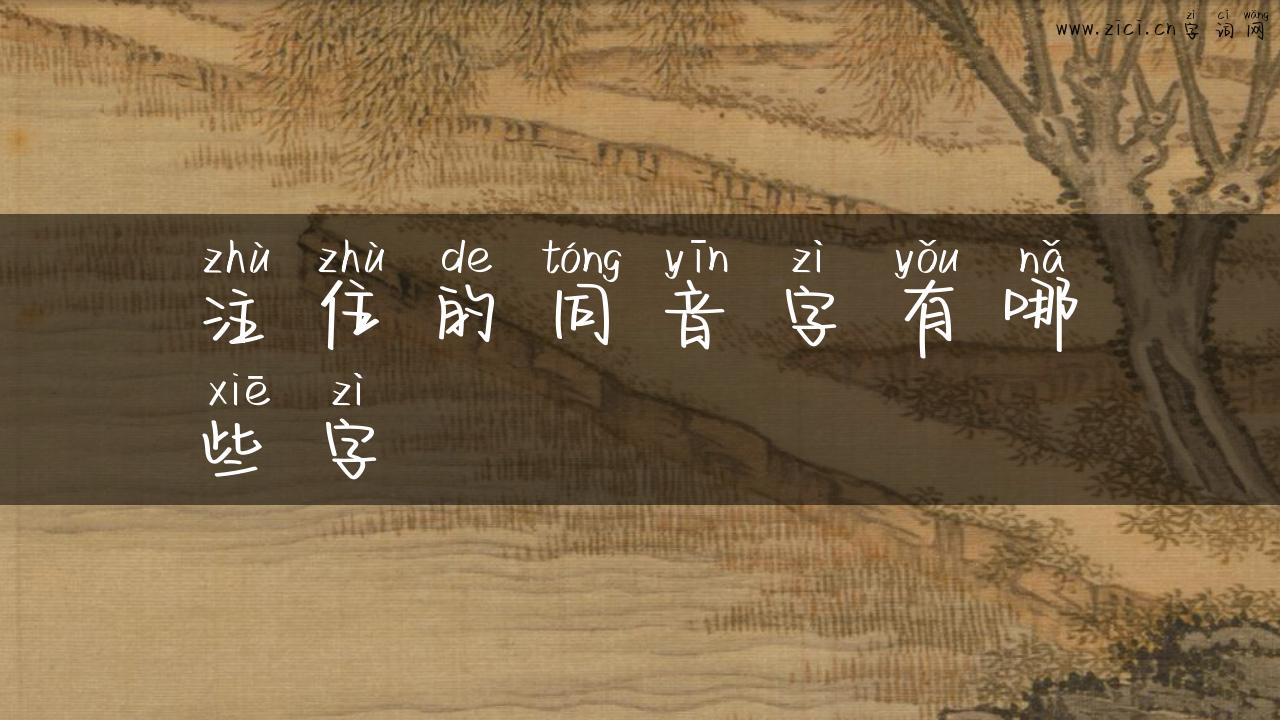 zì cí wǎng
www.zici.cn字词网
zhù zhù de tóng yīn zì yǒu nǎ
注住的同音字有哪
xiē zì
些字